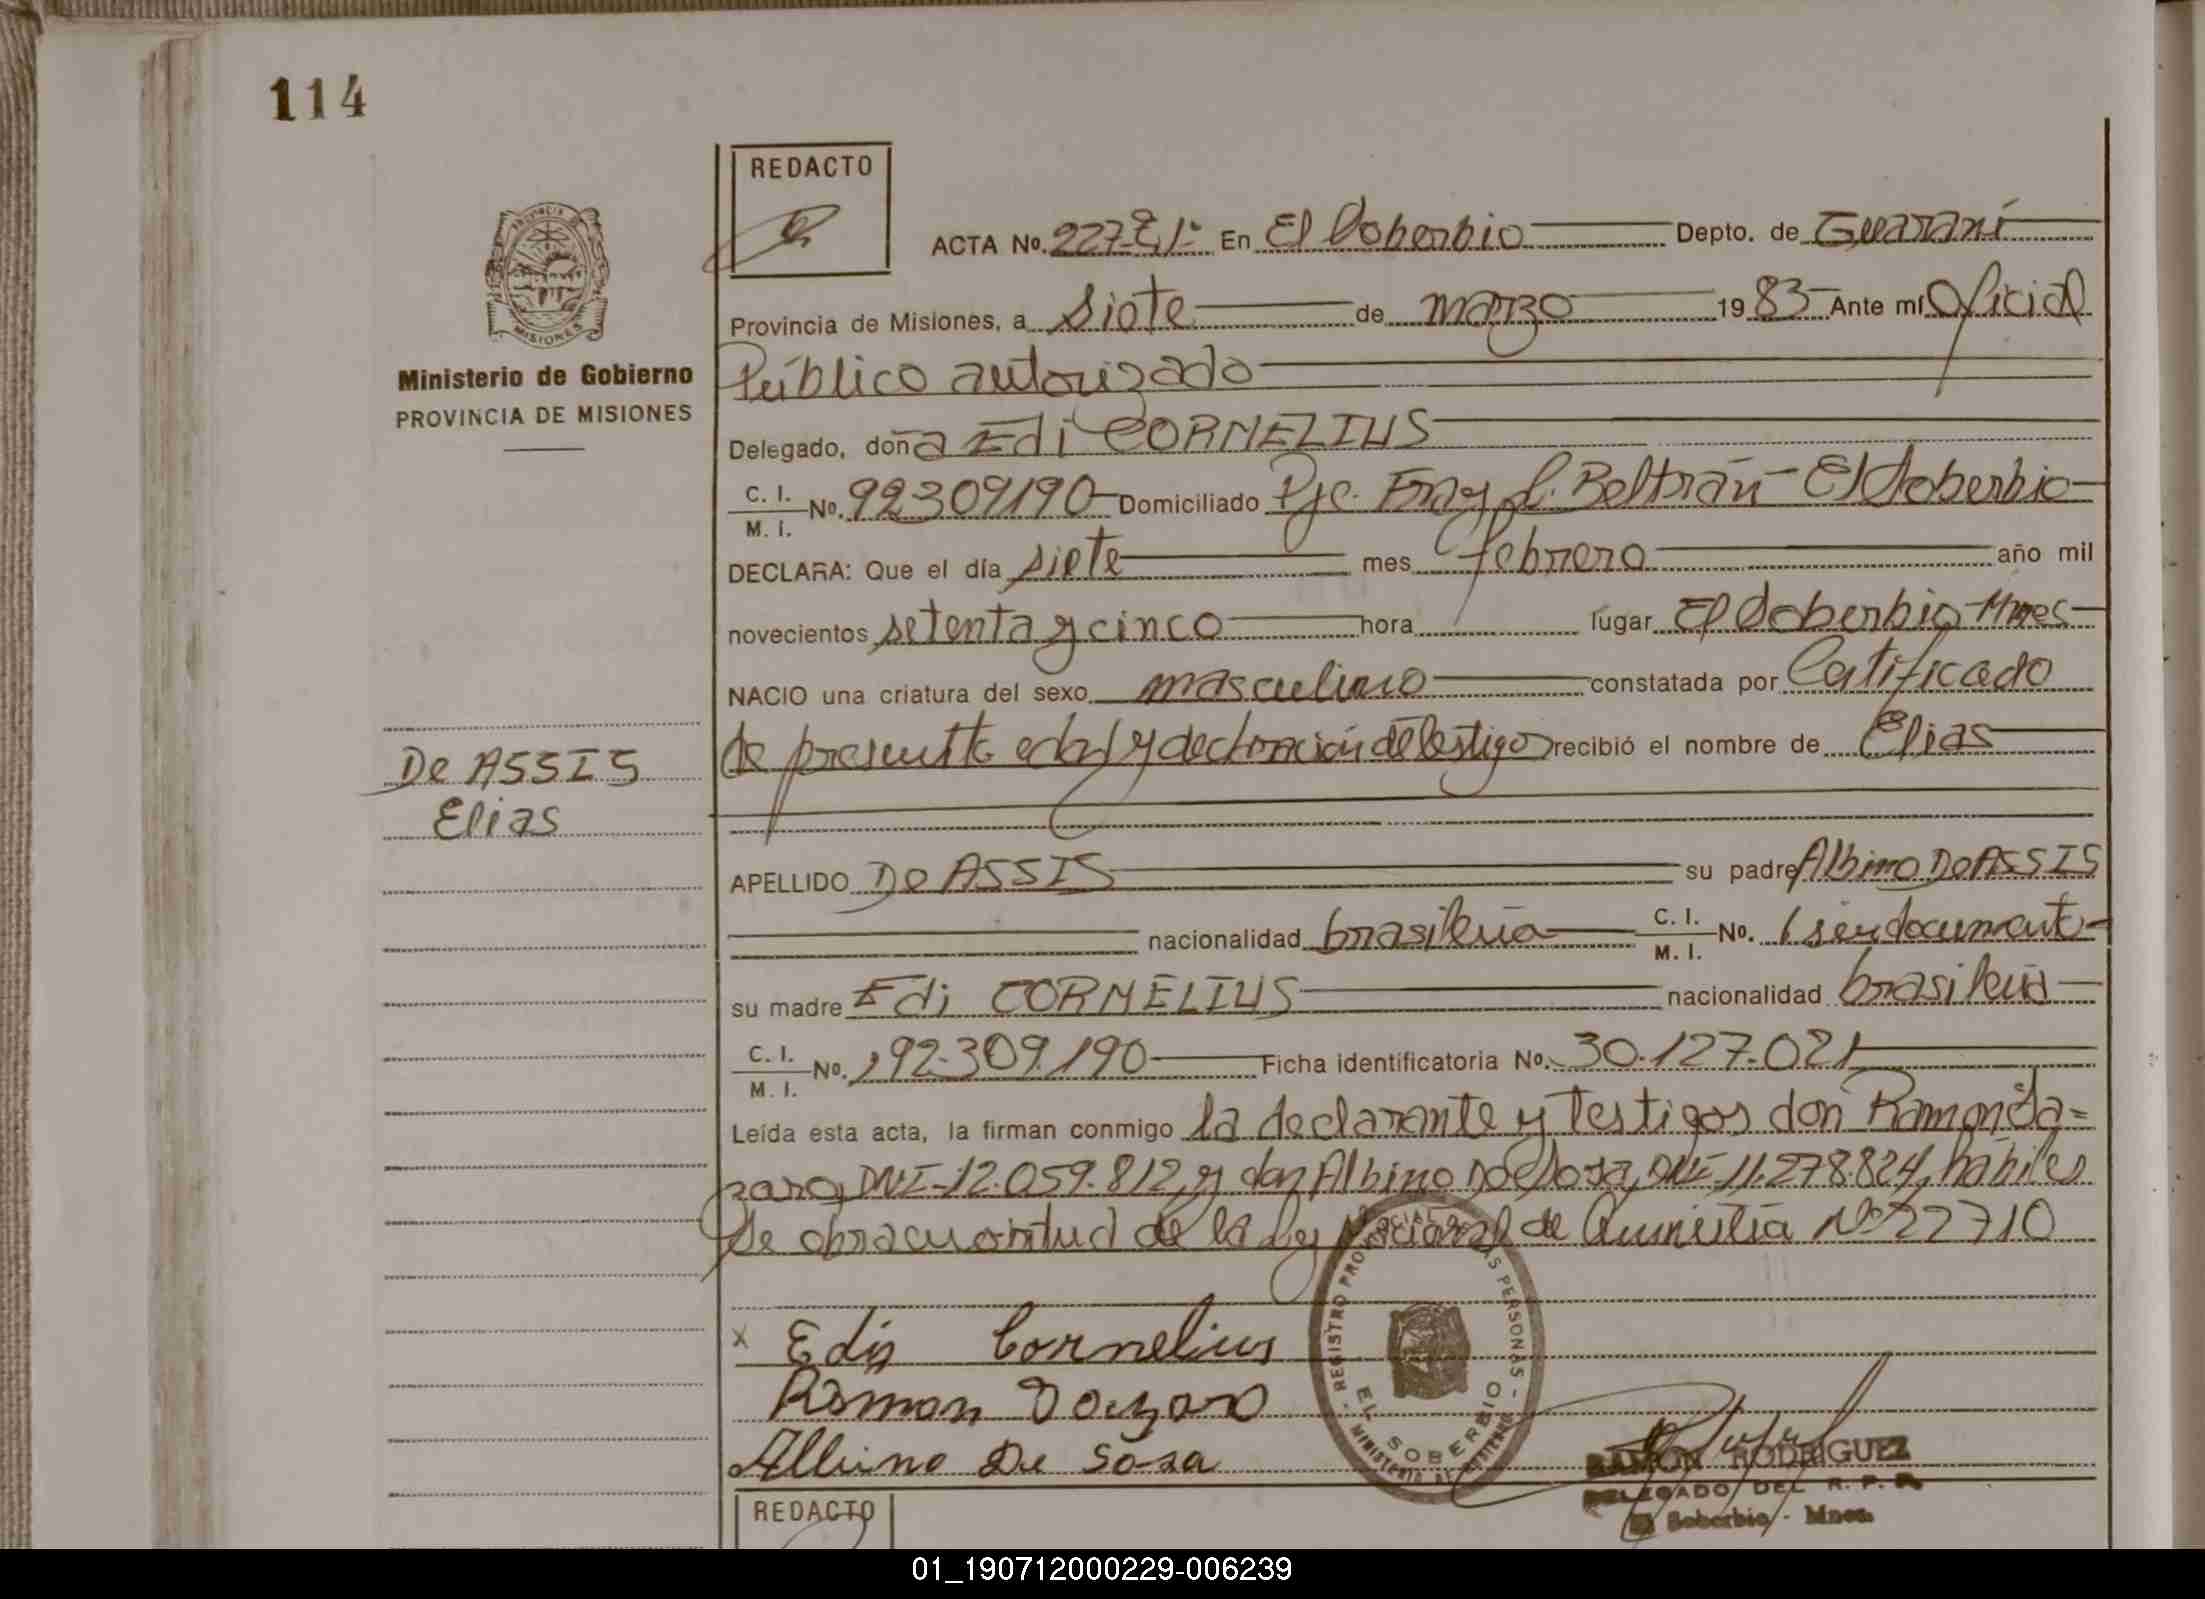 114
REDACTO
ACTA No. 227-E,1º En El Soberbio Depto. de Guaraní
PROVINCIA DE MISIONES
Provincia de Misiones, a siete de marzo 1983 Ante mí Oficial
Ministerio de Gobierno
PROVINCIA DE MISIONES
Público autorizado
Delegado, doña Edi CORNELIUS
C. I.
M. I. No. 92309190 Domiciliado Pje. Fray L. Beltrán - El Soberbio
DECLARA: Que el día siete mes febrero año mil
novecientos setenta y cinco hora lugar El Soberbio Mnes
NACIO una criatura del sexo masculino constatada por Certificado
de presunta edad y declaración de testigos recibió el nombre de Elias
De ASSIS
Elias
APELLIDO De ASSIS su padre Albino De ASSIS
nacionalidad brasileña C. I.
M. I. No. (sin documento-
su madre Edi CORNELIUS nacionalidad brasileña
C. I.
M. I. No. 92.309.190 Ficha identificatoria No. 30.127.021
Leída esta acta, la firman conmigo la declarante y Testigos don Ramon
DNI-12.059.812, y don Albino De Sosa, DNI-11.278.824, hábiles
Se obra en virtud de la Ley Nacional de Amnistía Nº 22710
x Edis Cornelius
Ramon
Albino De Sosa
REGISTRO PROVINCIAL DE LAS PERSONAS
EL SOBERBIO
MINISTERIO DE GOBIERNO
RAMON RODRIGUEZ
DELEGADO DEL R. P. P.
El Soberbio - Mnes.
REDACTO
01_190712000229-006239